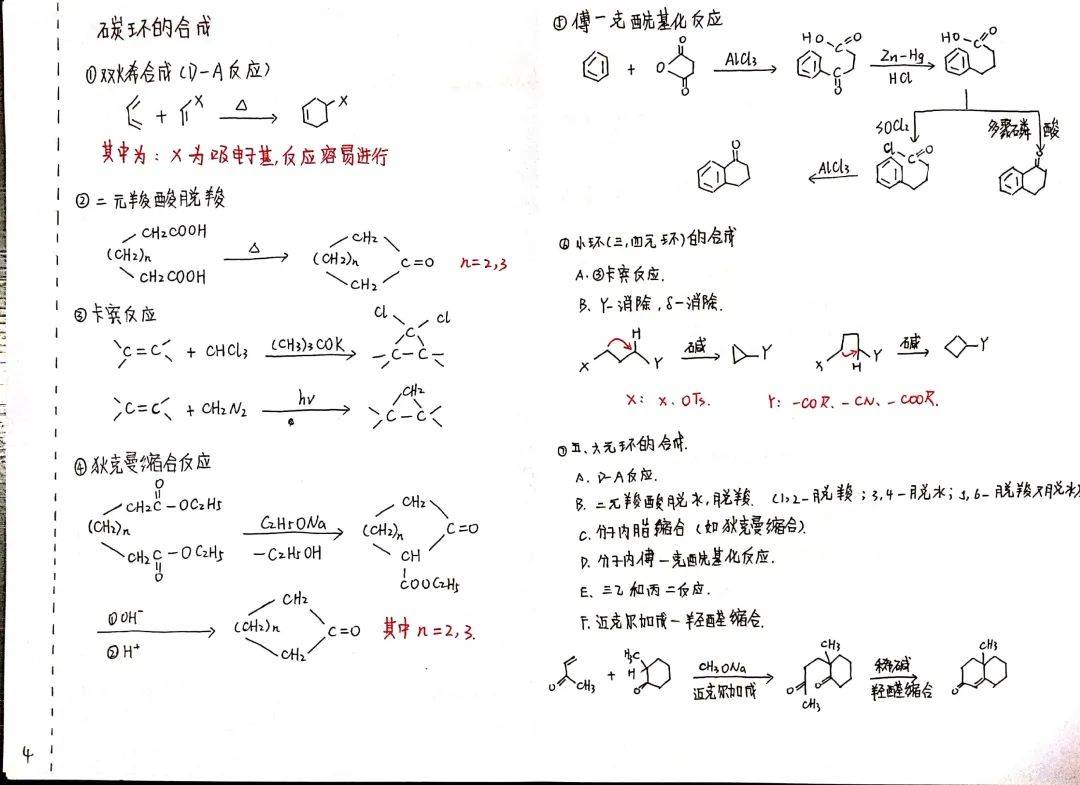 碳环的合成
①双烯合成(D-A反应)
X
+
△
X
其中为：X为吸电子基，反应容易进行
②二元羧酸脱羧
CH2COOH
(CH2)n
CH2COOH
△
CH2
(CH2)n
C=O
CH2
n=2,3
③卡宾反应
C=C + CHCl3
(CH3)3COK
Cl
Cl
C
C-C
C=C + CH2N2
hν
CH2
C-C
④狄克曼缩合反应
O
CH2C-OC2H5
(CH2)n
CH2C-OC2H5
O
C2H5ONa
-C2H5OH
CH2
(CH2)n
C=O
CH
COOC2H5
①OH⁻
②H⁺
CH2
(CH2)n
C=O
CH2
其中n=2,3.
4
⑤傅-克酰基化反应
+
O
O
O
AlCl3
HO
C=O
C
O
Zn-Hg
HCl
HO
C=O
SOCl2
多聚磷酸
Cl
C=O
O
AlCl3
O
⑥小环(三,四元环)的合成
A.③卡宾反应.
B.γ-消除,δ-消除.
H
X
Y
碱
Y
X
H
Y
碱
Y
X：X、OTs.
Y：-COR、-CN、-COOR.
⑦五、六元环的合成.
A. D-A反应.
B. 二元羧酸脱水,脱羧. (1,2-脱羧；3,4-脱水；5,6-脱羧又脱水)
C. 分子内脂缩合(如狄克曼缩合).
D. 分子内傅-克酰基化反应.
E. 三乙和丙二反应.
F. 迈克尔加成-羟醛缩合.
O
CH3
+
H3C
H
O
CH3ONa
迈克尔加成
CH3
O
O
CH3
稀碱
羟醛缩合
CH3
O